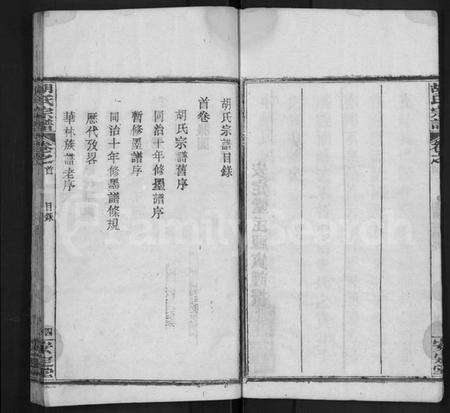 胡氏宗譜目錄
首卷
胡氏宗譜舊序
同治十年修墨譜序
暫修墨譜序
同治十年修墨譜條規
歷代攷畧
華林族譜老序
胡氏宗譜 卷之首 目錄 四 安定堂
胡氏宗譜 卷之 安定堂
FamilySearch